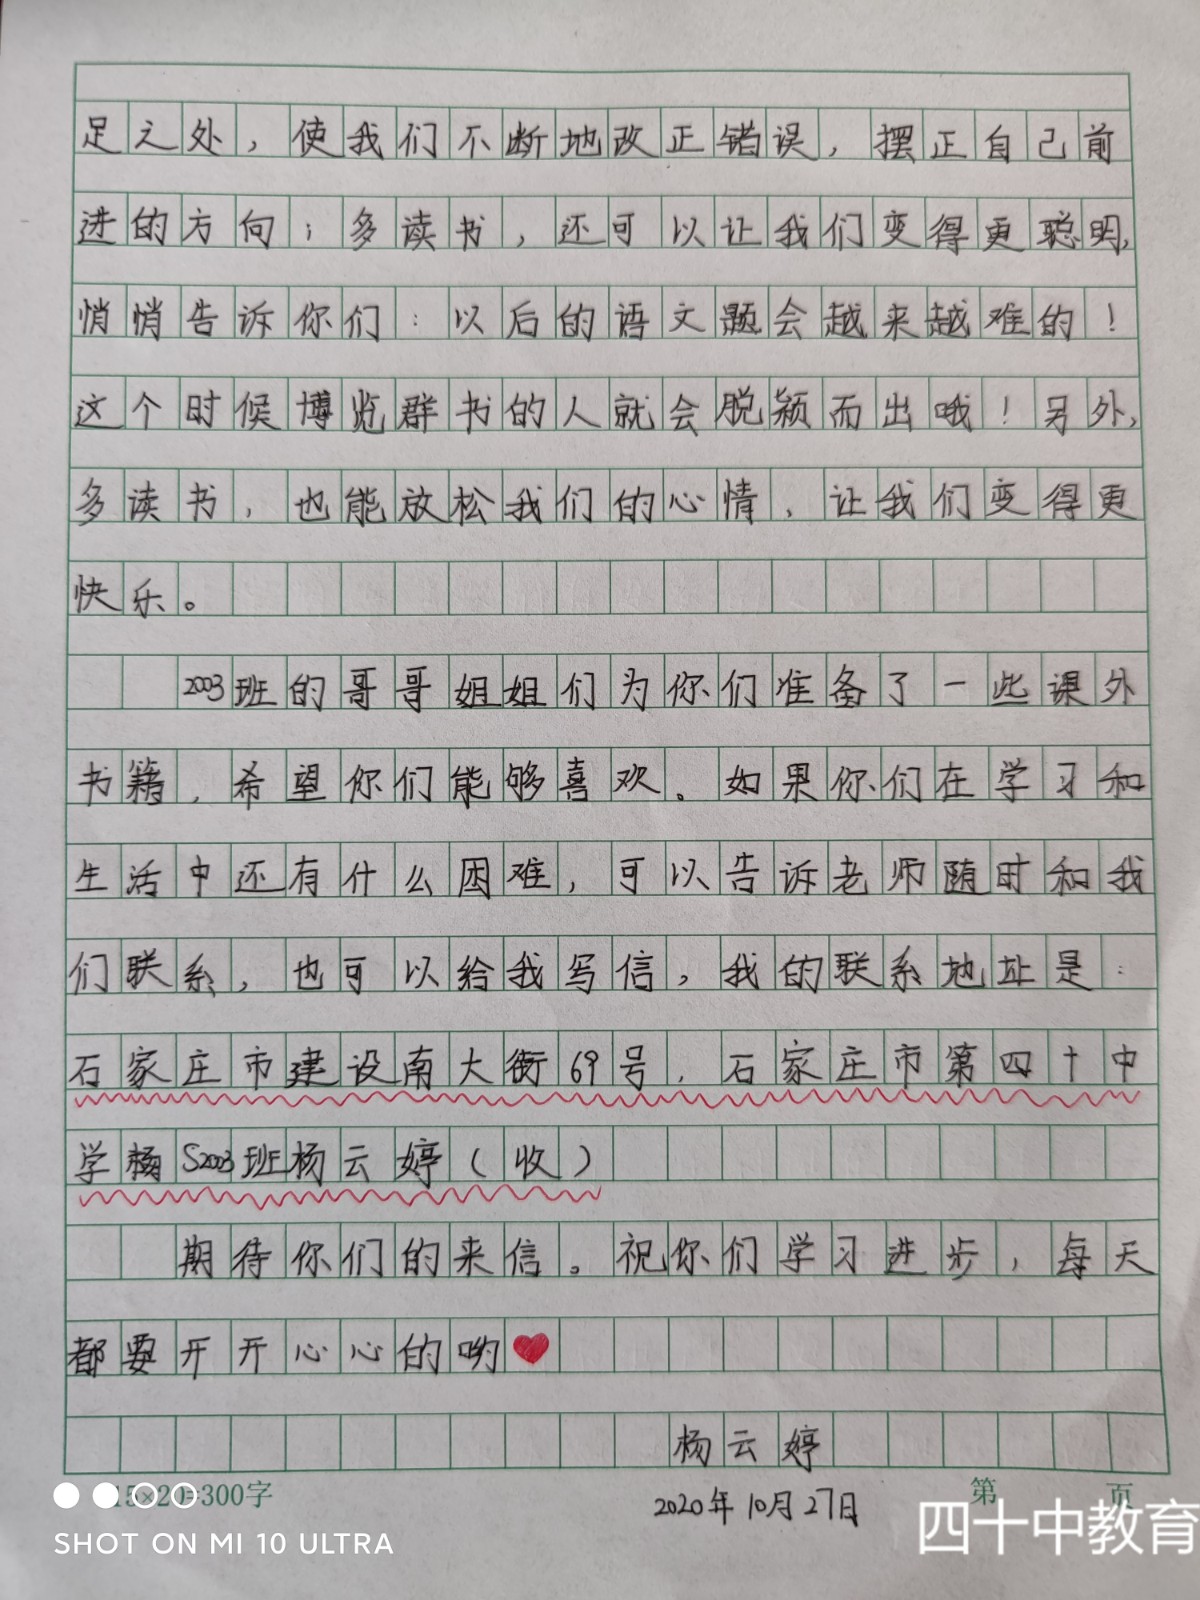 足之处，使我们不断地改正错误，摆正自己前
进的方向；多读书，还可以让我们变得更聪明，
悄悄告诉你们：以后的语文题会越来越难的！
这个时候博览群书的人就会脱颖而出哦！另外，
多读书，也能放松我们的心情，让我们变得更
快乐。
2003班的哥哥姐姐们为你们准备了一些课外
书籍，希望你们能够喜欢。如果你们在学习和
生活中还有什么困难，可以告诉老师随时和我
们联系，也可以给我写信，我的联系地址是：
石家庄市建设南大街69号，石家庄市第四十中
学 S2003班杨云婷（收）
期待你们的来信。祝你们学习进步，每天
都要开开心心的哟❤
杨云婷
15×20=300字 第 页
2020年10月27日
四十中教育
SHOT ON MI 10 ULTRA